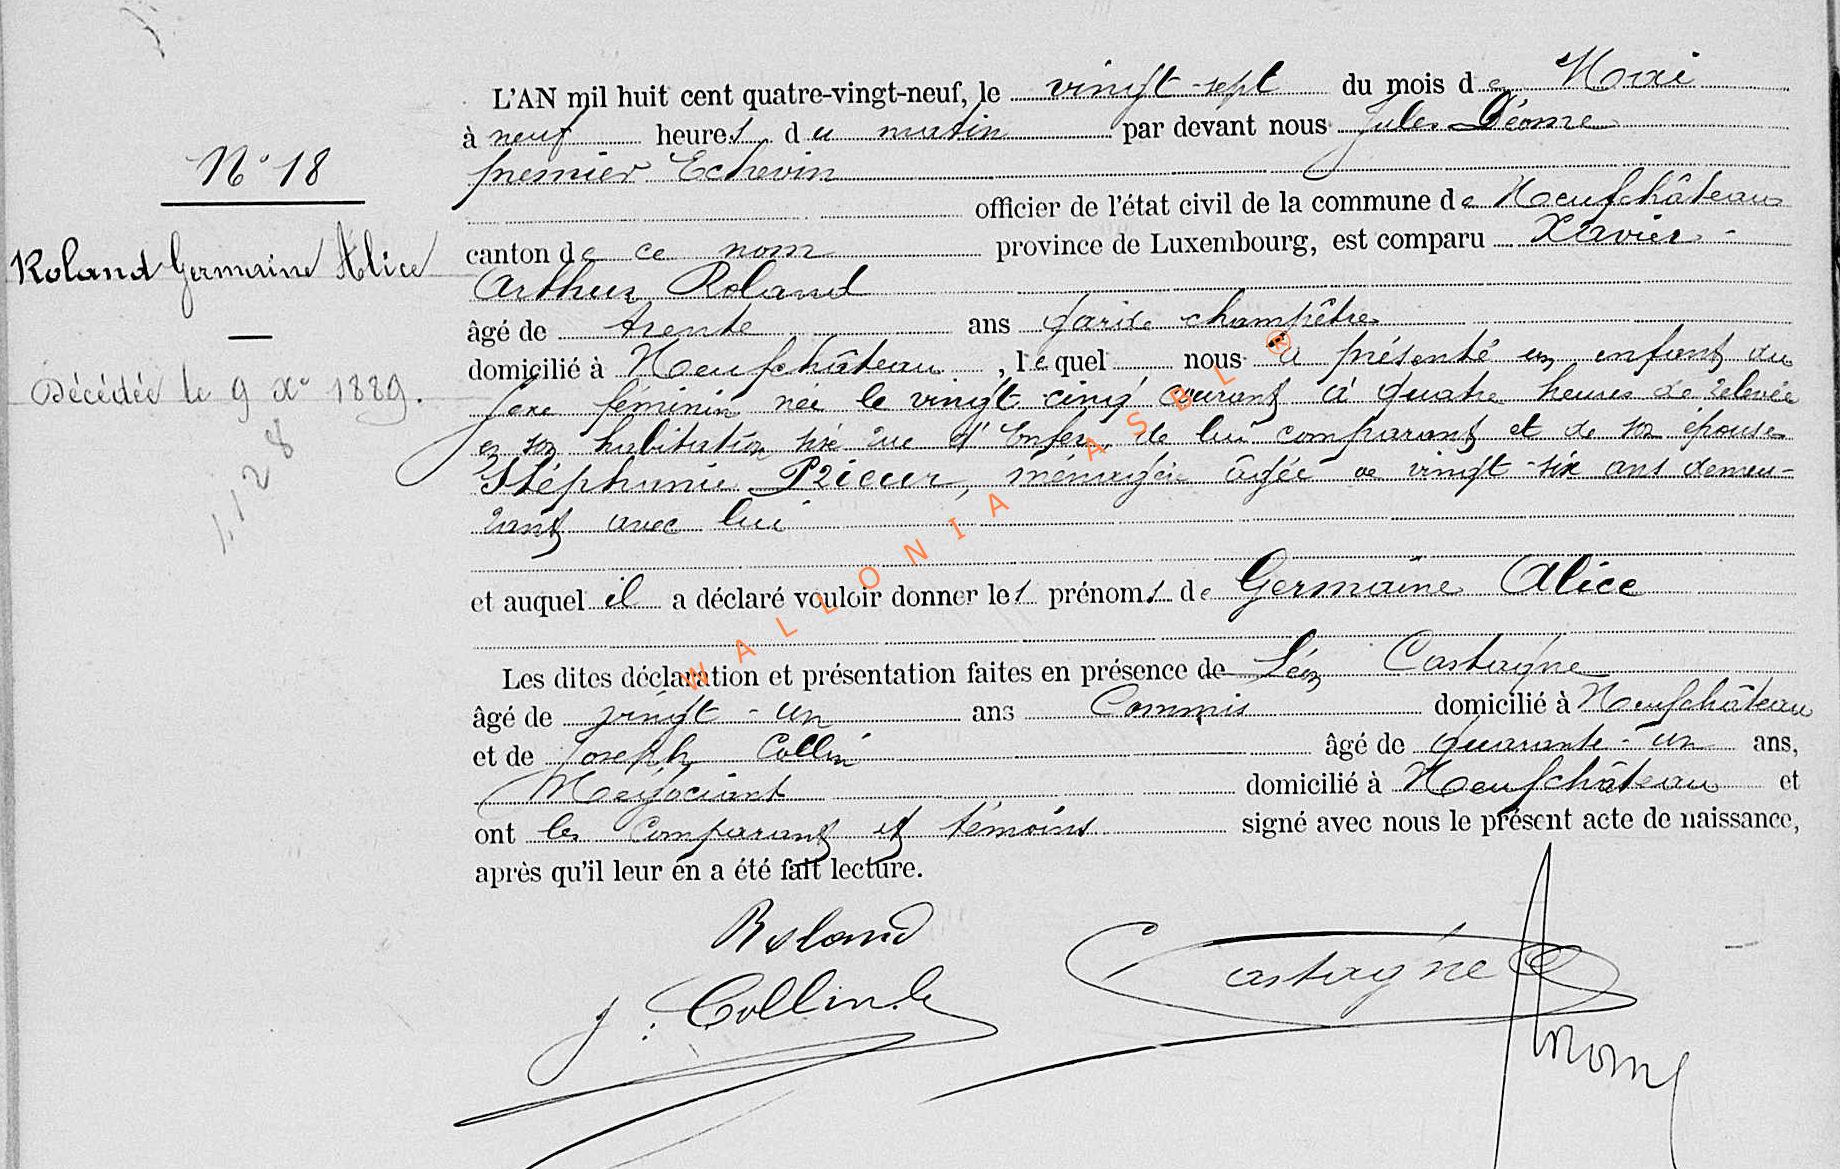 N° 18
Roland Germaine Alice
Décédée le 9 Xe 1889.
1128
L'AN mil huit cent quatre-vingt-neuf, le vingt-sept du mois de Mai
à neuf heures du matin par devant nous Jules Déome
premier Echevin
officier de l'état civil de la commune de Neufchâteau
canton de ce nom province de Luxembourg, est comparu Xavier-
Arthur Roland
âgé de trente ans garde champêtre
domicilié à Neufchâteau, lequel nous a présenté un enfant du
sexe féminin née le vingt cinq courant à quatre heures de relevée
en son habitation sise rue d'Enfer, de lui comparant et de son épouse
Stéphanie Prieur, ménagère âgée de vingt-six ans demeu-
rant avec lui
et auquel il a déclaré vouloir donner les prénoms de Germaine Alice
Les dites déclaration et présentation faites en présence de Léon Castaigne
âgé de vingt-un ans Commis domicilié à Neufchâteau
et de Joseph Collin âgé de quarante-un ans,
Négociant domicilié à Neufchâteau et
ont les comparant et témoins signé avec nous le présent acte de naissance,
après qu'il leur en a été fait lecture.
Roland
J. Collin Castaigne
WALLONIA ASBL ®